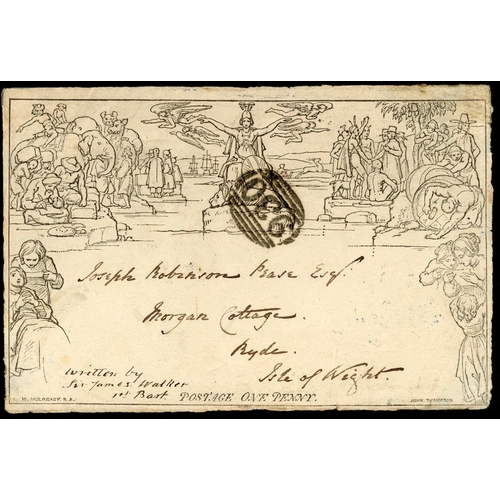 Joseph Robinson Pease Esqr.
Morgan Cottage.
Ryde.
Isle of Wight.
written by
Sir James Walker
1st Bart
POSTAGE ONE PENNY.
W. MULREADY. R.A.
JOHN THOMPSON